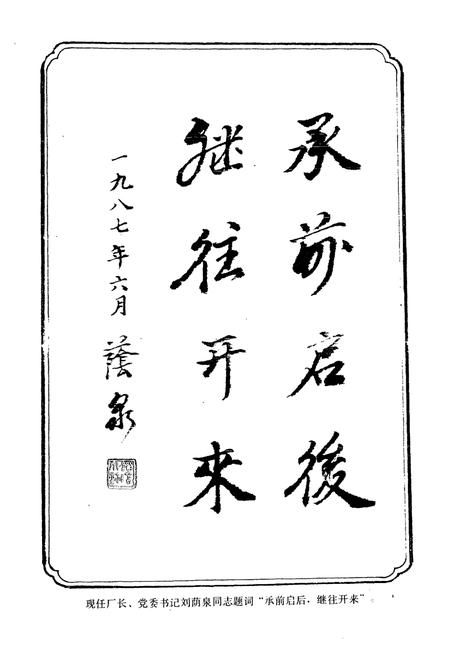 承前启後
继往开来
一九八七年六月
蔭泉
现任厂长、党委书记刘荫泉同志题词“承前启后，继往开来”